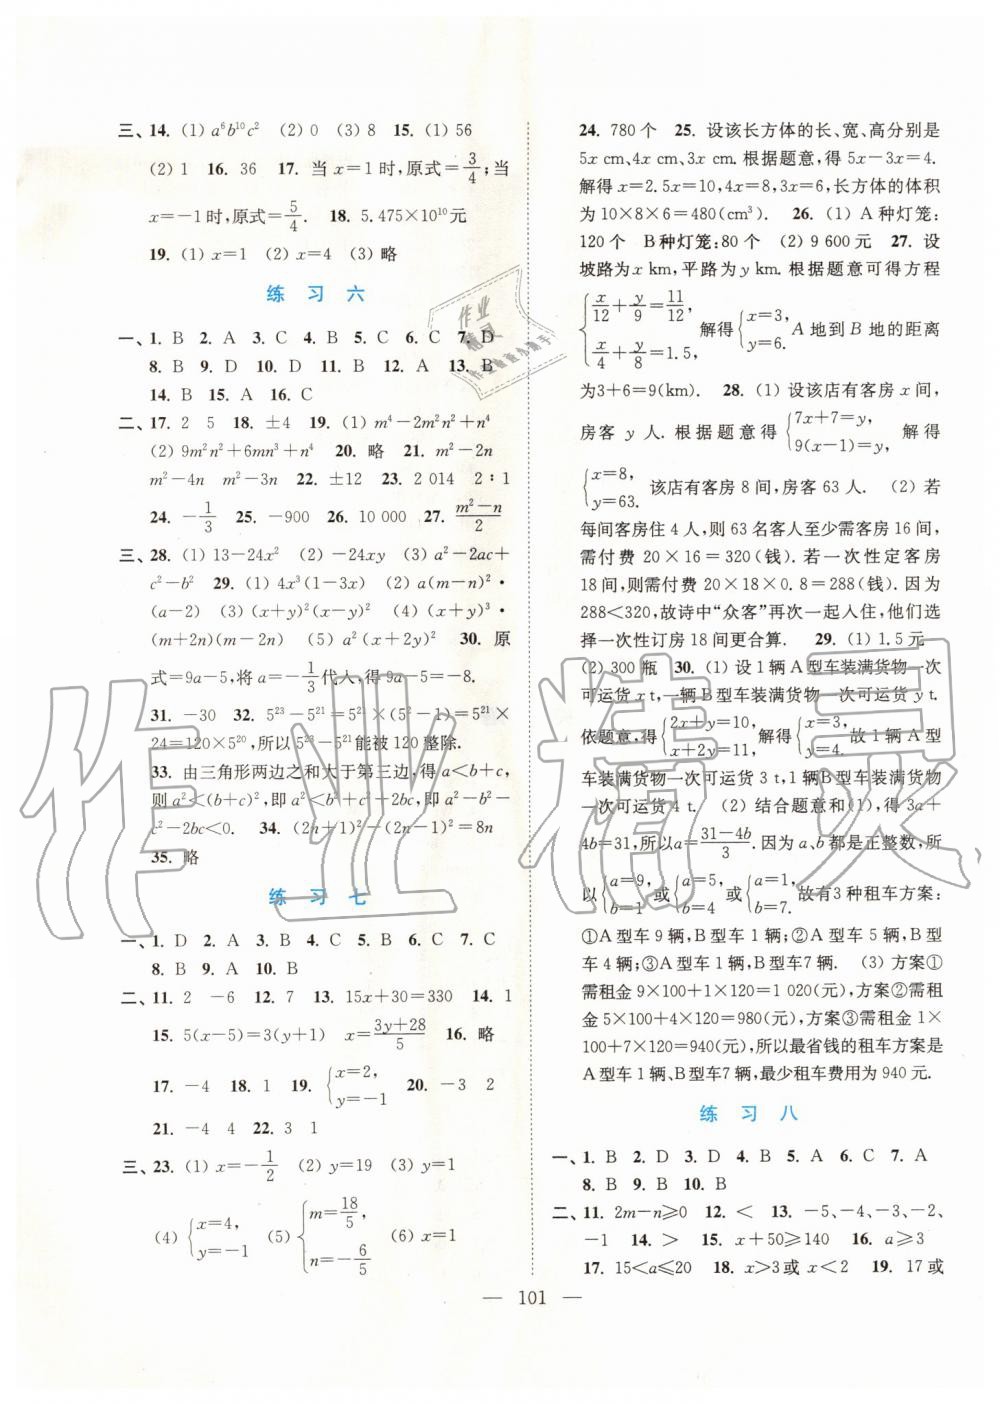 三、14. (1) a⁶b¹⁰c² (2) 0 (3) 8 15. (1) 56
(2) 1 16. 36 17. 当 x=1 时,原式=3/4;当
x=-1 时,原式=5/4. 18. 5.475×10¹⁰元
19. (1) x=1 (2) x=4 (3) 略
练 习 六
一、1. B 2. A 3. C 4. B 5. C 6. C 7. D
8. B 9. D 10. D 11. B 12. A 13. B
14. B 15. A 16. C
二、17. 2 5 18. ±4 19. (1) m⁴-2m²n²+n⁴
(2) 9m²n²+6mn³+n⁴ 20. 略 21. m²-2n
m²-4n m²-3n 22. ±12 23. 2 014 2∶1
24. -1/3 25. -900 26. 10 000 27. (m²-n)/2
三、28. (1) 13-24x² (2) -24xy (3) a²-2ac+
c²-b² 29. (1) 4x³(1-3x) (2) a(m-n)²·
(a-2) (3) (x+y)²(x-y)² (4) (x+y)³·
(m+2n)(m-2n) (5) a²(x+2y)² 30. 原
式=9a-5,将 a=-1/3代入,得 9a-5=-8.
31. -30 32. 5²³-5²¹=5²¹×(5²-1)=5²¹×
24=120×5²⁰,所以 5²³-5²¹能被 120 整除.
33. 由三角形两边之和大于第三边,得 a<b+c,
则 a²<(b+c)²,即 a²<b²+c²+2bc,即 a²-b²-
c²-2bc<0. 34. (2n+1)²-(2n-1)²=8n
35. 略
练 习 七
一、1. D 2. A 3. B 4. C 5. B 6. C 7. C
8. B 9. A 10. B
二、11. 2 -6 12. 7 13. 15x+30=330 14. 1
15. 5(x-5)=3(y+1) x=(3y+28)/5 16. 略
17. -4 18. 1 19. {x=2, y=-1 20. -3 2
21. -4 4 22. 3 1
三、23. (1) x=-1/2 (2) y=19 (3) y=1
(4) {x=4, y=-1 (5) {m=18/5, n=-6/5 (6) x=1
24. 780 个 25. 设该长方体的长、宽、高分别是
5x cm,4x cm,3x cm. 根据题意,得 5x-3x=4.
解得 x=2. 5x=10,4x=8,3x=6,长方体的体积
为 10×8×6=480(cm³). 26. (1) A 种灯笼:
120 个 B 种灯笼:80 个 (2) 9 600 元 27. 设
坡路为 x km,平路为 y km. 根据题意可得方程
{x/12+y/9=11/12, x/4+y/8=1.5, 解得{x=3, y=6. A 地到 B 地的距离
为3+6=9(km). 28. (1) 设该店有客房 x 间,
房客 y 人. 根据题意得 {7x+7=y, 9(x-1)=y, 解得
{x=8, y=63. 该店有客房 8 间,房客 63 人. (2) 若
每间客房住 4 人,则 63 名客人至少需客房 16 间,
需付费 20×16=320(钱). 若一次性定客房
18 间,则需付费 20×18×0.8=288(钱). 因为
288<320,故诗中“众客”再次一起入住,他们选
择一次性订房 18 间更合算. 29. (1) 1.5 元
(2) 300 瓶 30. (1) 设 1 辆 A 型车装满货物一次
可运货 x t,一辆 B 型车装满货物一次可运货 y t.
依题意,得{2x+y=10, x+2y=11, 解得{x=3, y=4. 故 1 辆 A 型
车装满货物一次可运货 3 t,1 辆B型车装满货物
一次可运货 4 t. (2) 结合题意和(1),得 3a+
4b=31,所以a=(31-4b)/3. 因为 a、b都是正整数,所
以{a=9, b=1 或{a=5, b=4 或{a=1, b=7. 故有 3 种租车方案:
①A 型车 9 辆,B型车 1 辆;②A 型车 5 辆,B型
车 4 辆;③A 型车 1 辆,B型车7 辆. (3) 方案①
需租金 9×100+1×120=1 020(元),方案②需租
金 5×100+4×120=980(元),方案③需租金 1×
100+7×120=940(元),所以最省钱的租车方案是
A 型车 1 辆、B型车7 辆,最少租车费用为 940 元.
练 习 八
一、1. B 2. D 3. D 4. B 5. A 6. C 7. A
8. B 9. B 10. B
二、11. 2m-n⩾0 12. < 13. -5、-4、-3、-2、
-1 14. > 15. x+50⩾140 16. a⩾3
17. 15<a⩽20 18. x>3 或 x<2 19. 17 或
— 101 —
作业精灵